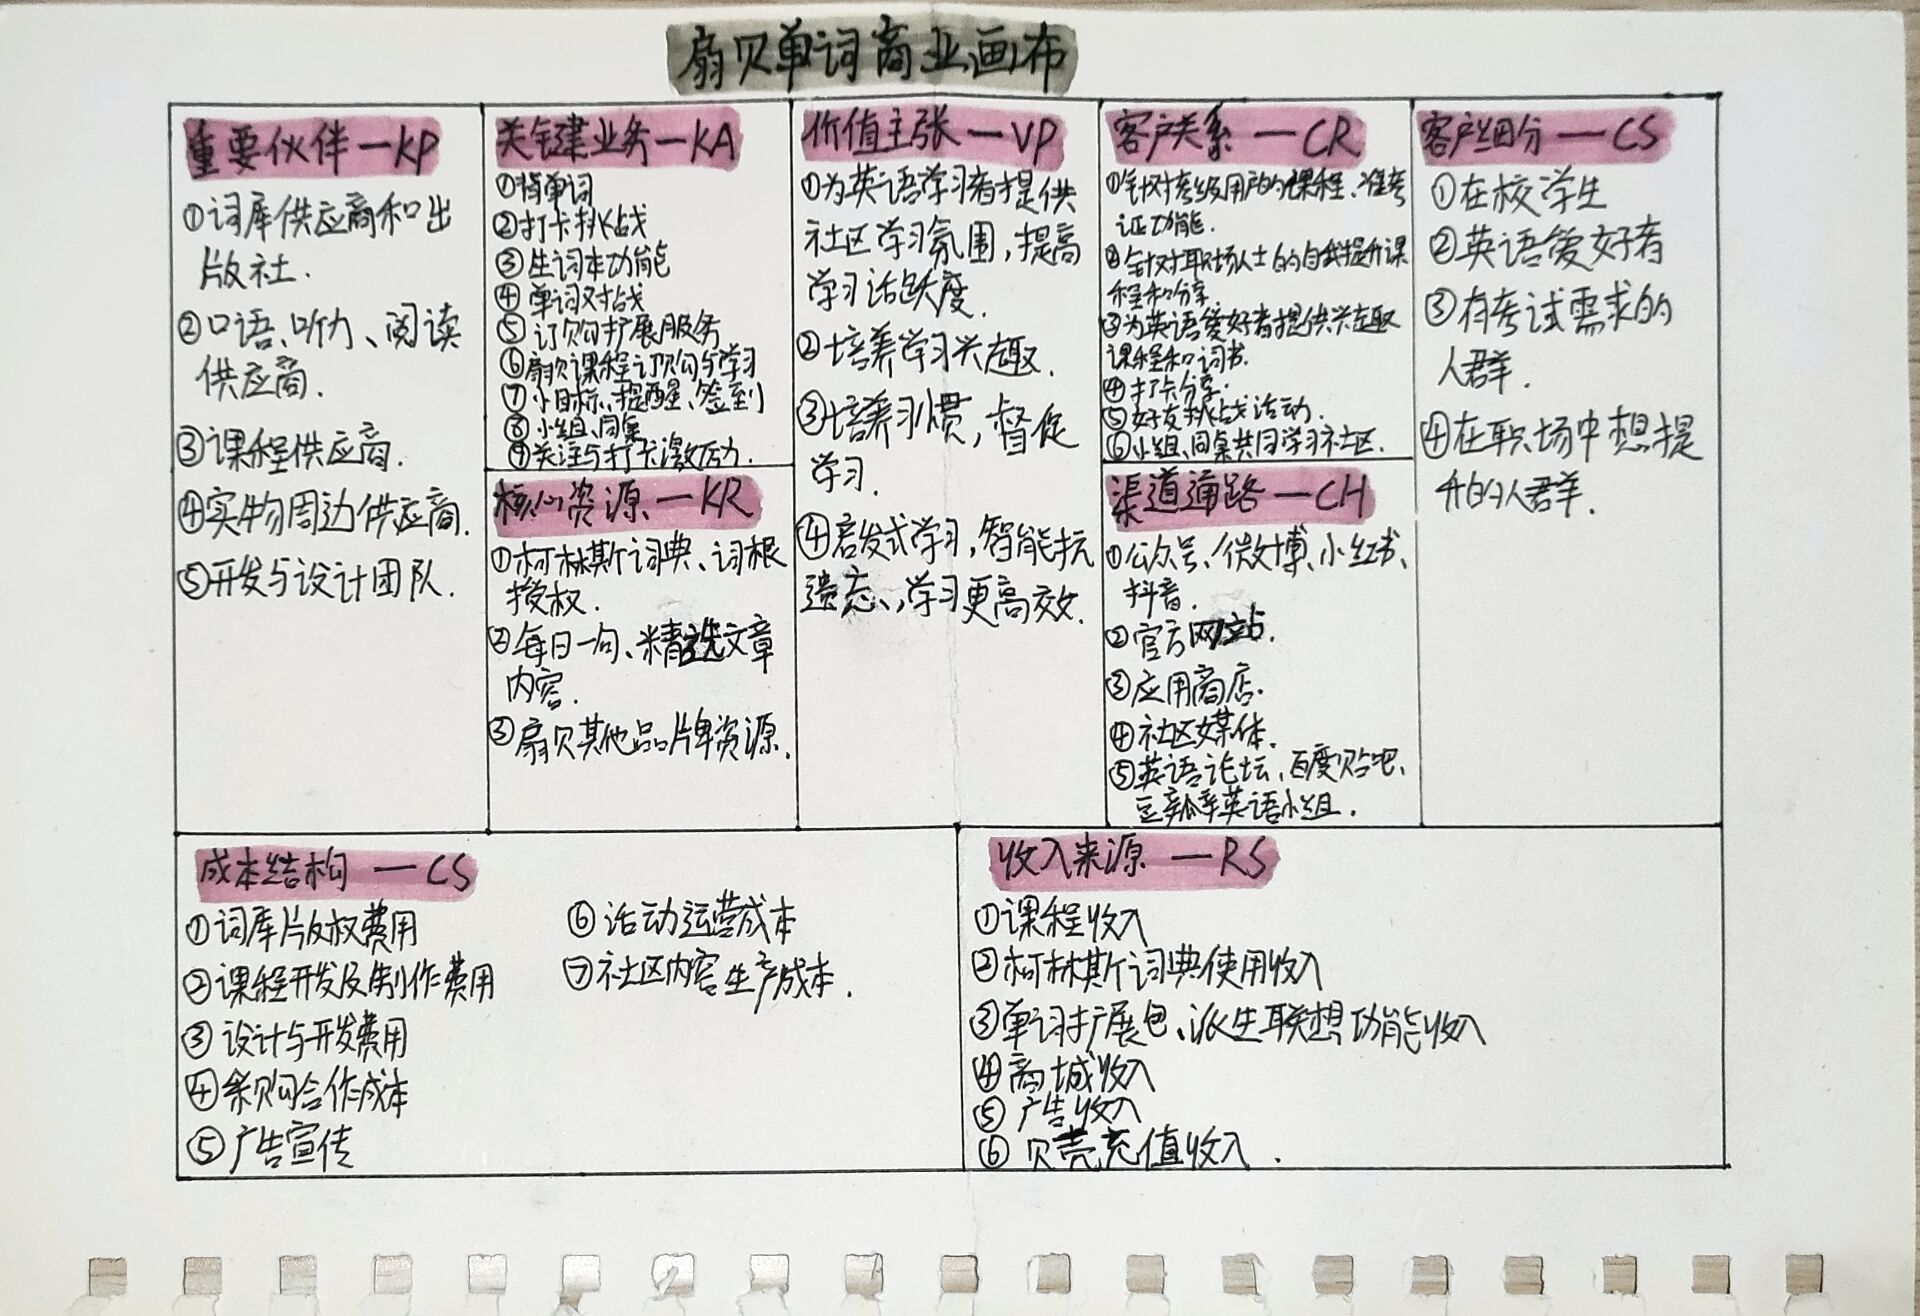 扇贝单词商业画布
重要伙伴—KP
①词库供应商和出
版社.
②口语、听力、阅读
供应商.
③课程供应商.
④实物周边供应商.
⑤开发与设计团队.
关键业务—KA
①背单词
②打卡挑战
③生词本功能
④单词对战
⑤订购扩展服务
⑥扇贝课程订购与学习
⑦小目标、提醒、签到
⑧小组、同桌
⑨关注与打卡激励力.
核心资源—KR
①柯林斯词典、词根
授权.
②每日一句、精选文章
内容.
③扇贝其他品牌资源.
价值主张—VP
①为英语学习者提供
社区学习氛围,提高
学习活跃度.
②培养学习兴趣.
③培养习惯,督促
学习.
④启发式学习,智能抗
遗忘,学习更高效.
客户关系—CR
①针对考级用户的课程、准考
证功能.
②针对职场人士的自我提升课
程和分享
③为英语爱好者提供兴趣
课程和词书.
④打卡分享.
⑤好友挑战活动.
⑥小组、同桌共同学习社区.
渠道通路—CH
①公众号、微博、小红书、
抖音.
②官方网站.
③应用商店.
④社区媒体.
⑤英语论坛、百度贴吧、
豆瓣英语小组.
客户细分—CS
①在校学生
②英语爱好者
③有考试需求的
人群.
④在职场中想提
升的人群.
成本结构—CS
①词库版权费用
②课程开发及制作费用
③设计与开发费用
④采购合作成本
⑤广告宣传
⑥活动运营成本
⑦社区内容生产成本.
收入来源—RS
①课程收入
②柯林斯词典使用收入
③单词扩展包、派生联想功能收入
④商城收入
⑤广告收入
⑥贝壳充值收入.